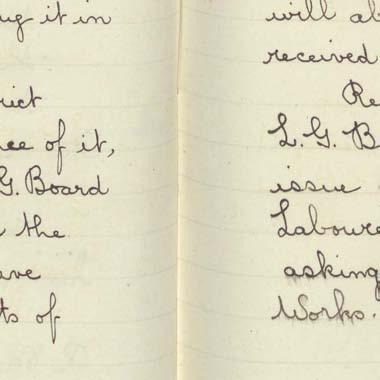 g it in
rict
ce of it,
G. Board
the
ave
ts of
will ab
received
Re
L. G. B
issue
Laboure
asking
Works.